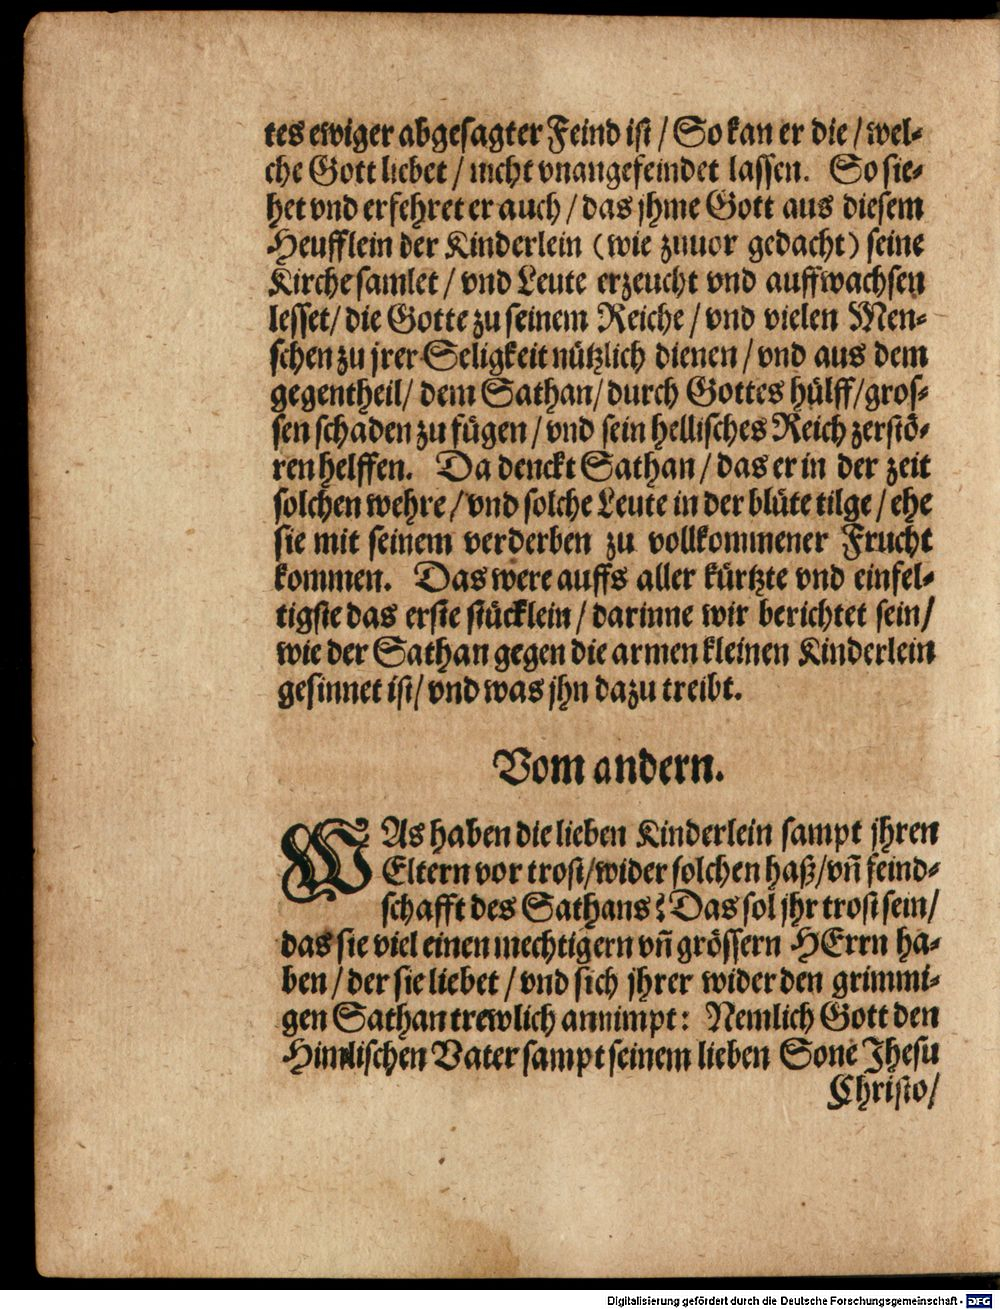 tes ewiger abgesagter Feind ist / So kan er die / wel-
che Gott liebet / nicht vnangefeindet lassen. So sie-
het vnd erfehret er auch / das jhme Gott aus diesem
Heufflein der Kinderlein (wie zuuor gedacht) seine
Kirche samlet / vnd Leute erzeucht vnd auffwachsen
lesset / die Gotte zu seinem Reiche / vnd vielen Men-
schen zu jrer Seligkeit nützlich dienen / vnd aus dem
gegentheil / dem Sathan / durch Gottes hülff / gros-
sen schaden zu fügen / vnd sein hellisches Reich zerstö-
ren helffen. Da denckt Sathan / das er in der zeit
solchen wehre / vnd solche Leute in der blüte tilge / ehe
sie mit seinem verderben zu vollkommener Frucht
kommen. Das were auffs aller kürtzte vnd einfel-
tigste das erste stücklein / darinne wir berichtet sein /
wie der Sathan gegen die armen kleinen Kinderlein
gesinnet ist / vnd was jhn dazu treibt.
Vom andern.
WAs haben die lieben Kinderlein sampt jhren
Eltern vor trost / wider solchen haß / vñ feind-
schafft des Sathans? Das sol jhr trost sein /
das sie viel einen mechtigern vñ grössern HErrn ha-
ben / der sie liebet / vnd sich jhrer wider den grimmi-
gen Sathan trewlich annimpt: Nemlich Gott den
Himlischen Vater sampt seinem lieben Sone Jhesu
Christo /
Digitalisierung gefördert durch die Deutsche Forschungsgemeinschaft - DFG